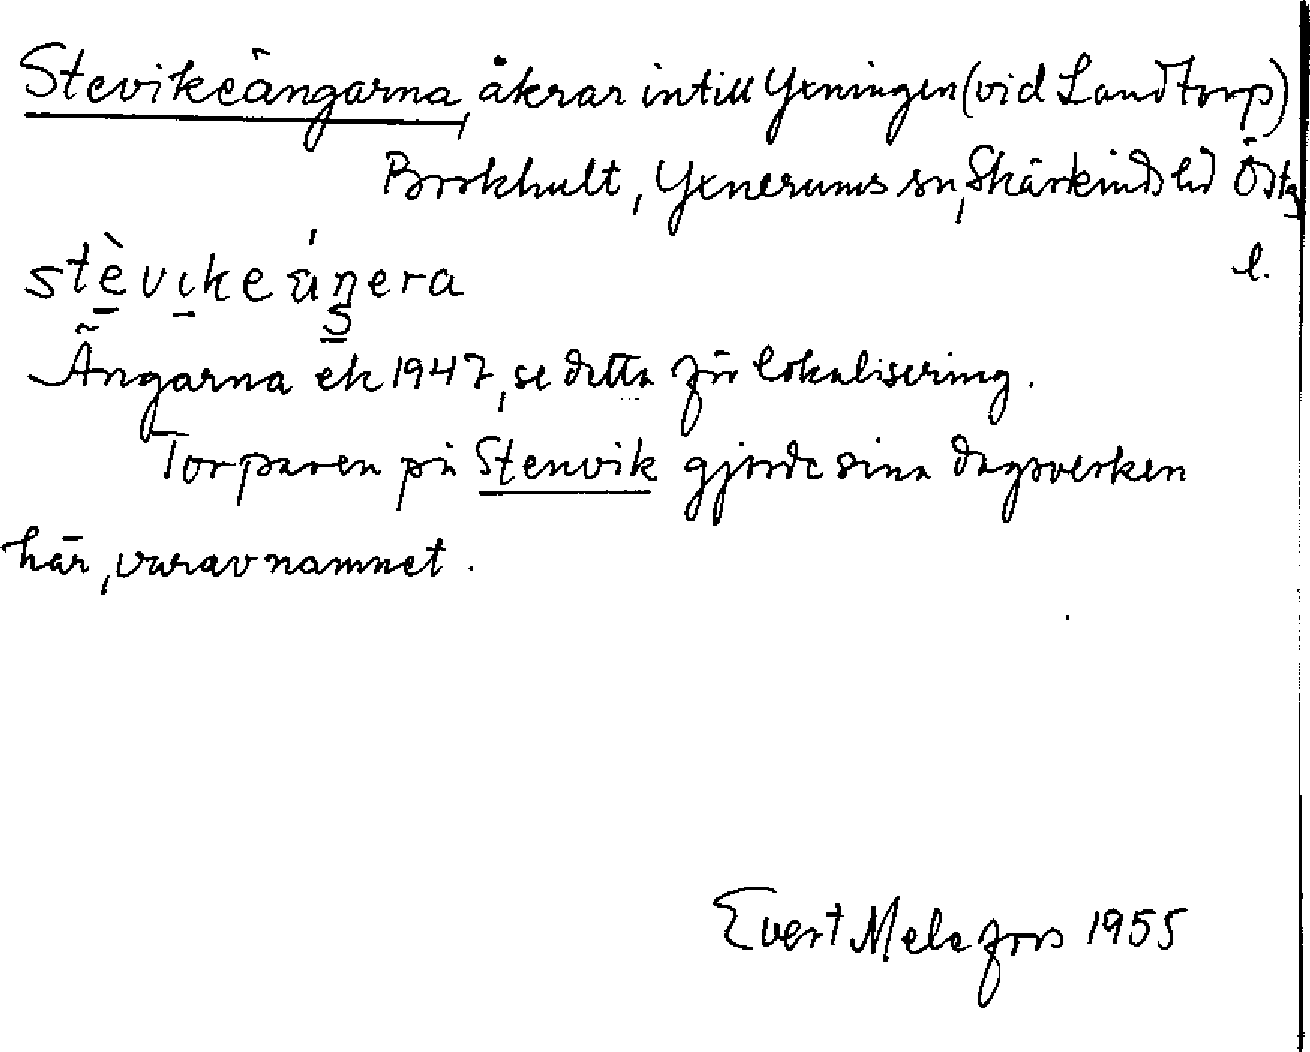 Stevikeängarna, åkrar intill Yxningen (vid Landtorp)
Brokhult, Yxnerums sn, Skärkinds hd Östg
l.
stèvikeáŋera
Ängarna ek 1947, se detta för lokalisering.
Torparen på Stenvik gjorde sina dagsverken
här, varav namnet.
Evert Melefors 1955